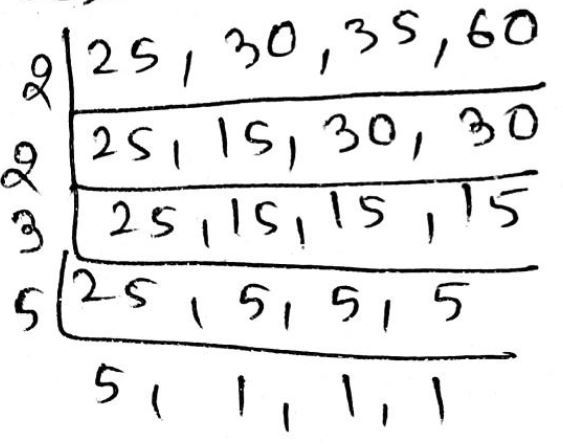 2 | 25, 30, 35, 60
2 | 25, 15, 30, 30
3 | 25, 15, 15, 15
5 | 25, 5, 5, 5
5, 1, 1, 1